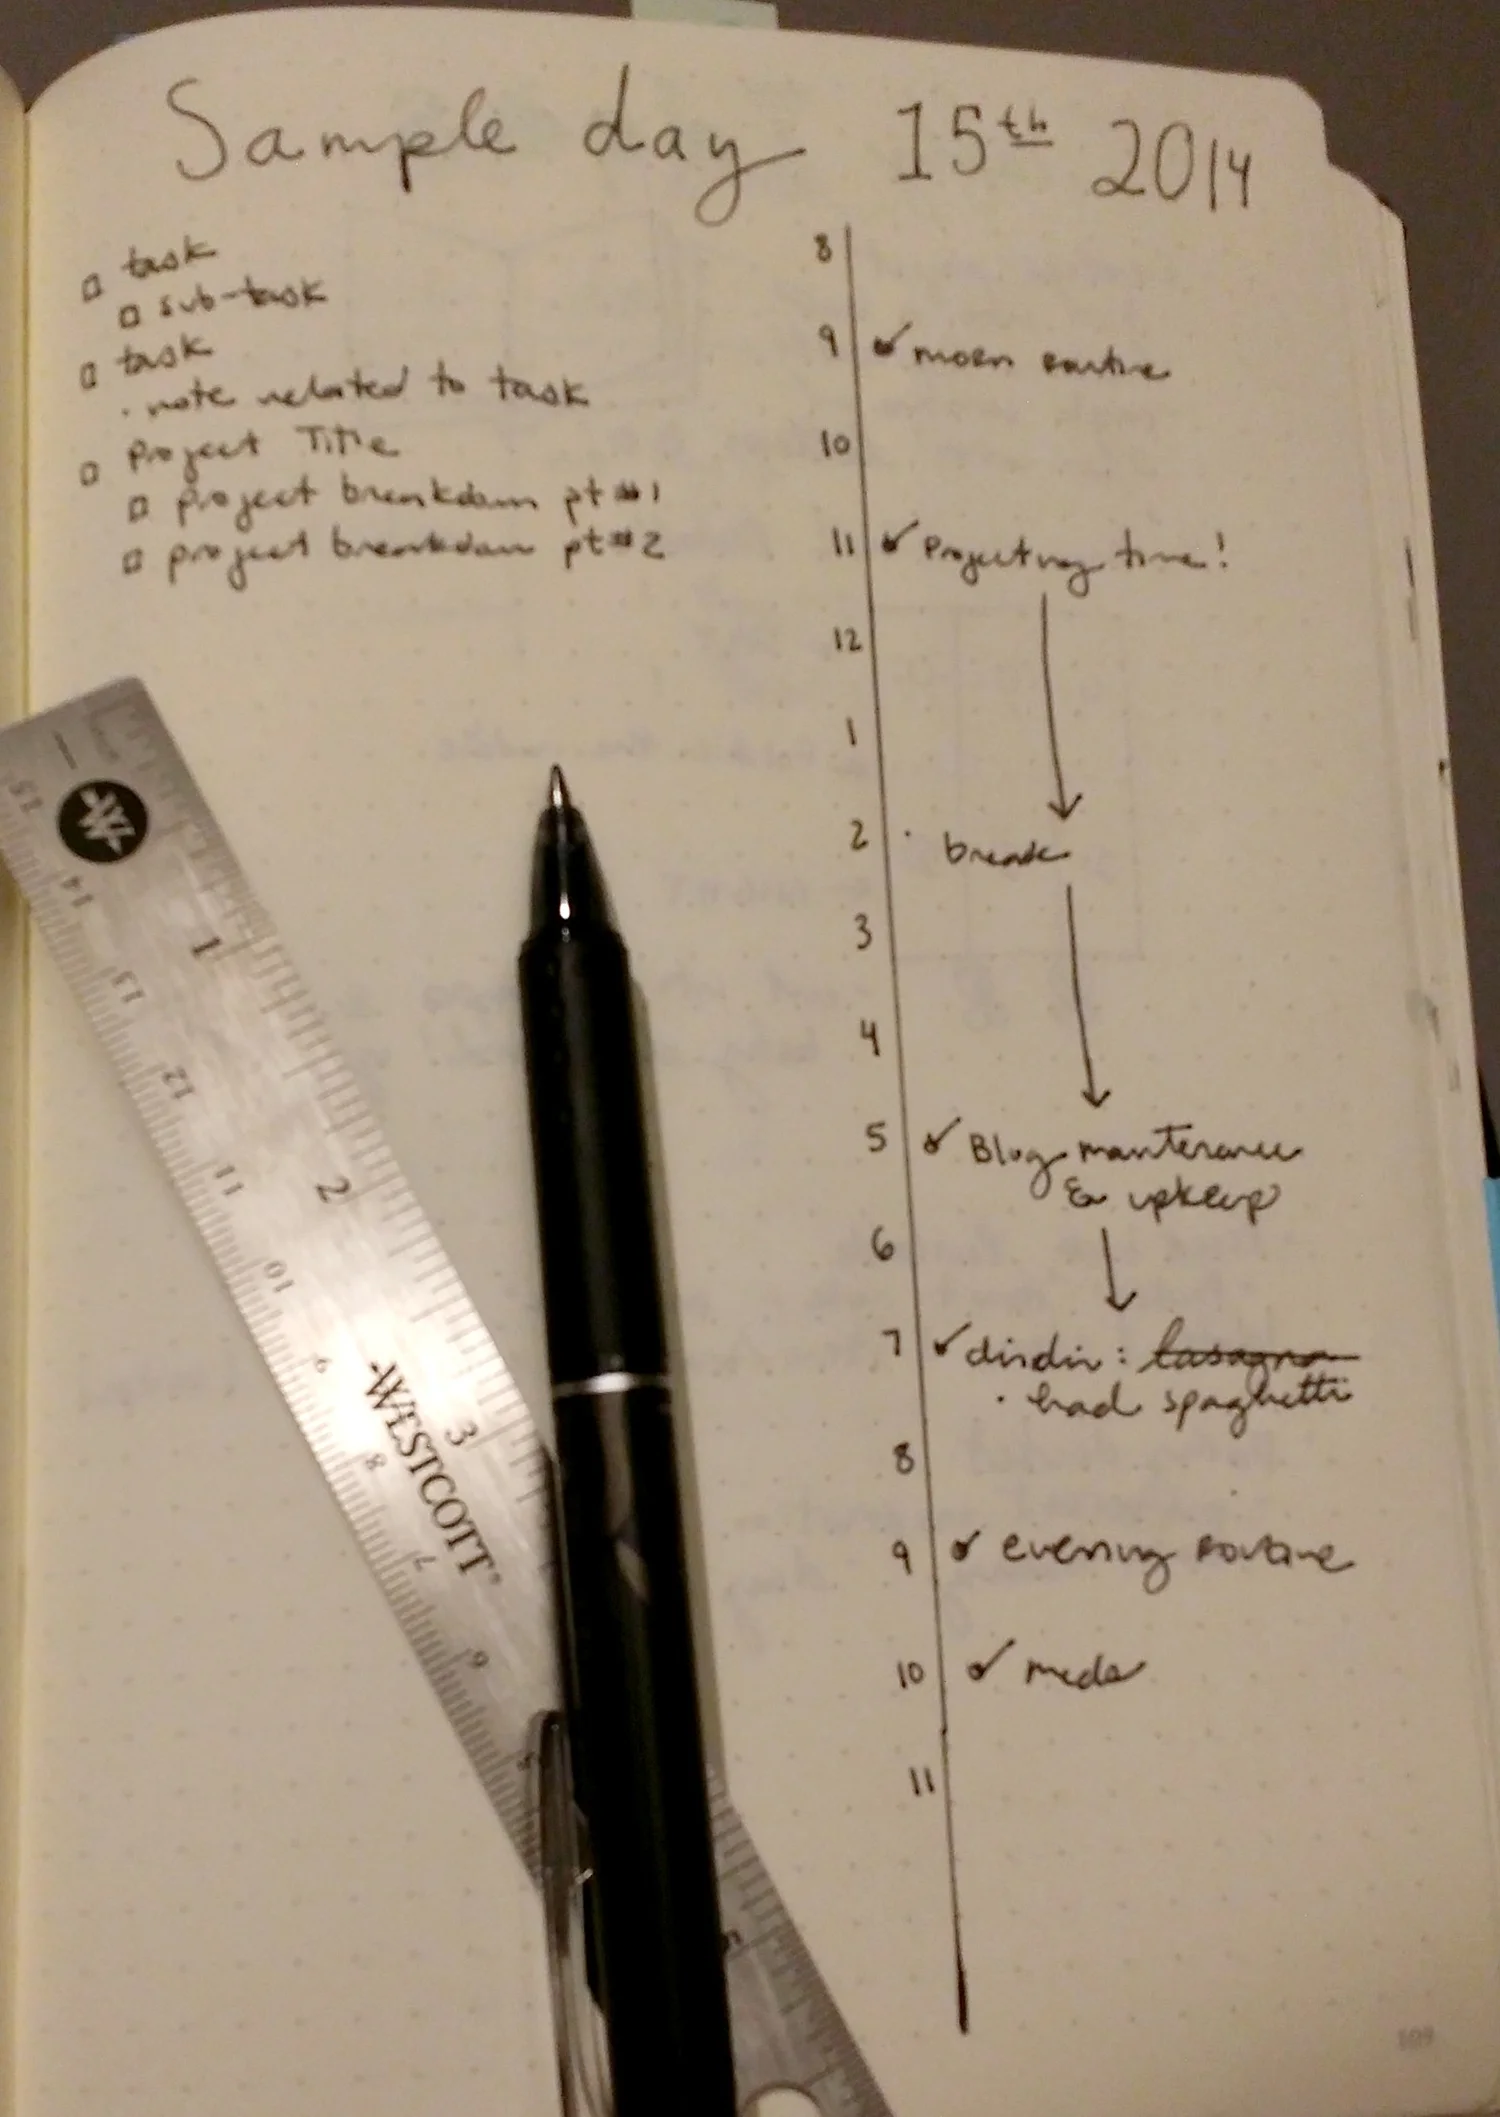 Sample day 15th 2014
task
sub-task
task
· note related to task
Project Title
project breakdown pt #1
project breakdown pt #2
8
9 morn routine
10
11 Projecting time!
12
1
2 · break
3
4
5 Blog maintenance
& upkeep
6
7 dindin: lasagna
· had spaghetti
8
9 evening routine
10 meds
11
1
2
3
15
14
13
12
11
10
9
8
7
6
5
WESTCOTT®
5
109